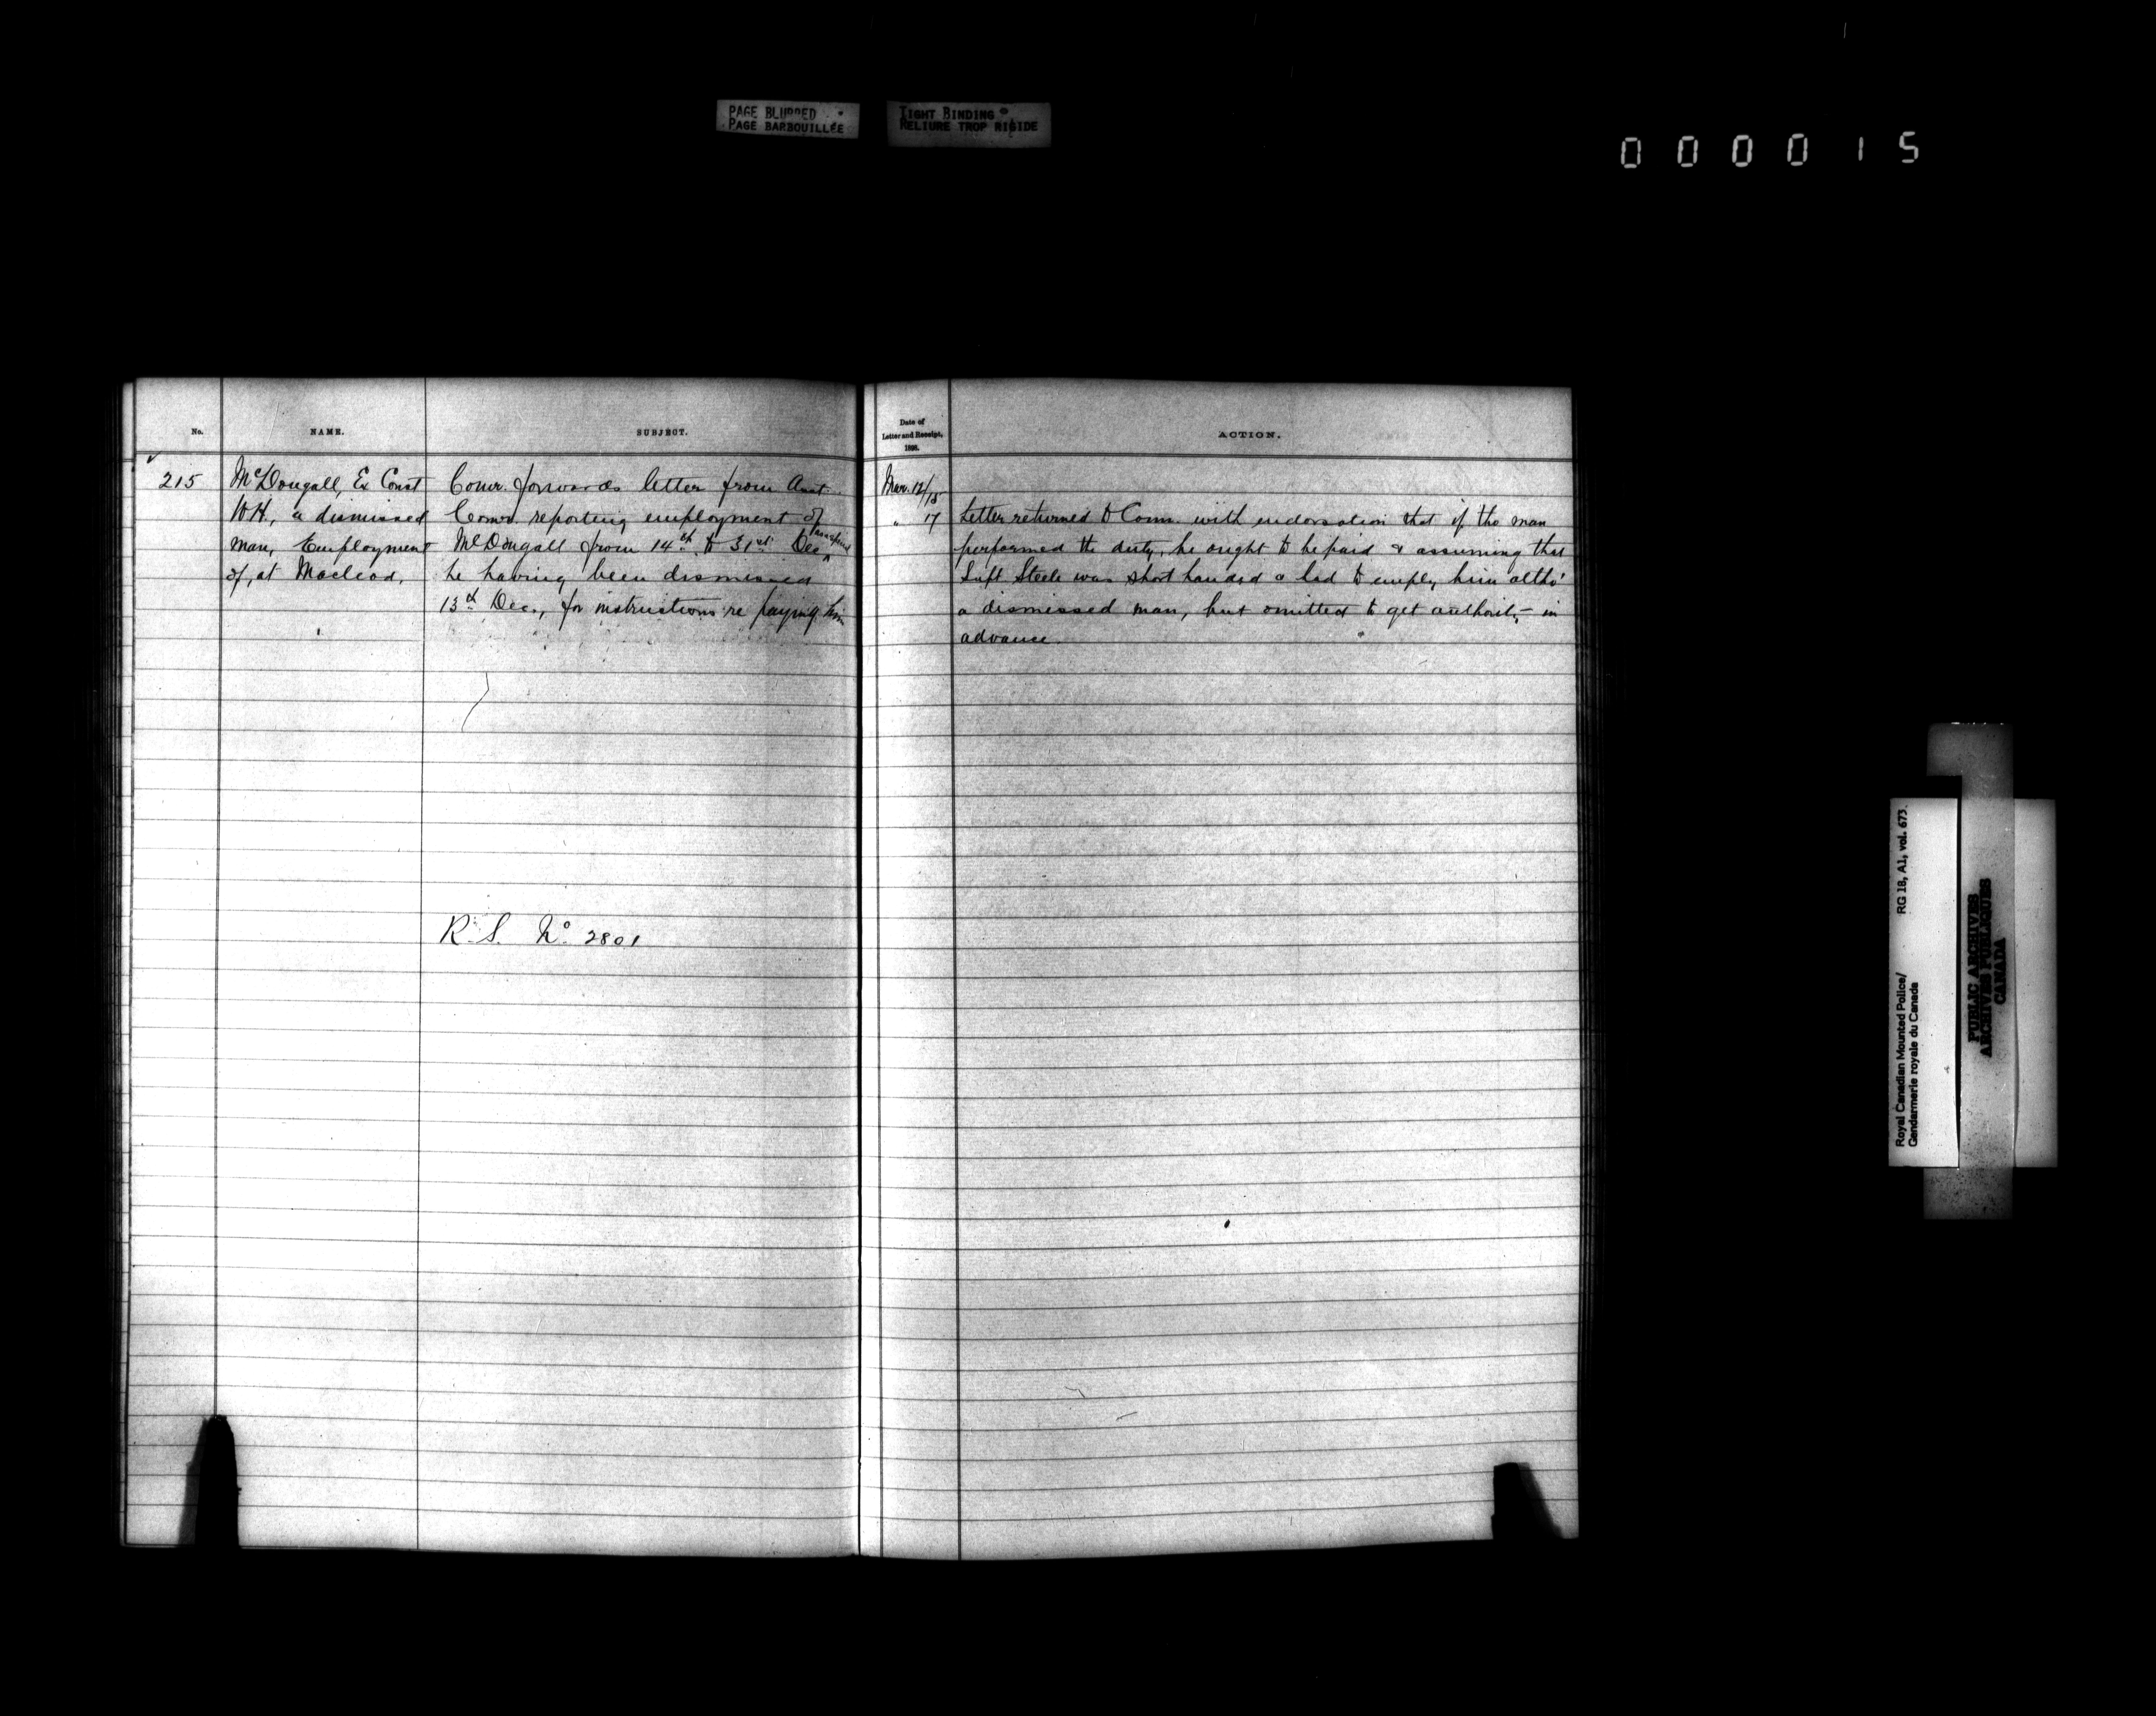 PAGE BLURRED
PAGE BARBOUILLÉE
TIGHT BINDING
RELIURE TROP RIGIDE
000015
No.
NAME.
SUBJECT.
215
McDougall, Ex Const
W.H., a dismissed
man, Employment
of, at Macleod.
Comr. forwards letter from Asst.
Comr. reporting employment of
McDougall from 14th to 31st Dec
he having been dismissed
13th Dec., for instructions re paying him
R.S. No. 2801
Date of
Letter and Receipt,
1898.
ACTION.
Mar. 12/15
" 17
Letter returned to Comr. with endorsation that if the man
performed the duty, he ought to be paid & assuming that
Supt Steele was short handed & had to employ him altho'
a dismissed man, but omitted to get authority in
advance.
Royal Canadian Mounted Police/
Gendarmerie royale du Canada
RG 18, A1, vol. 673.
PUBLIC ARCHIVES
ARCHIVES PUBLIQUES
CANADA